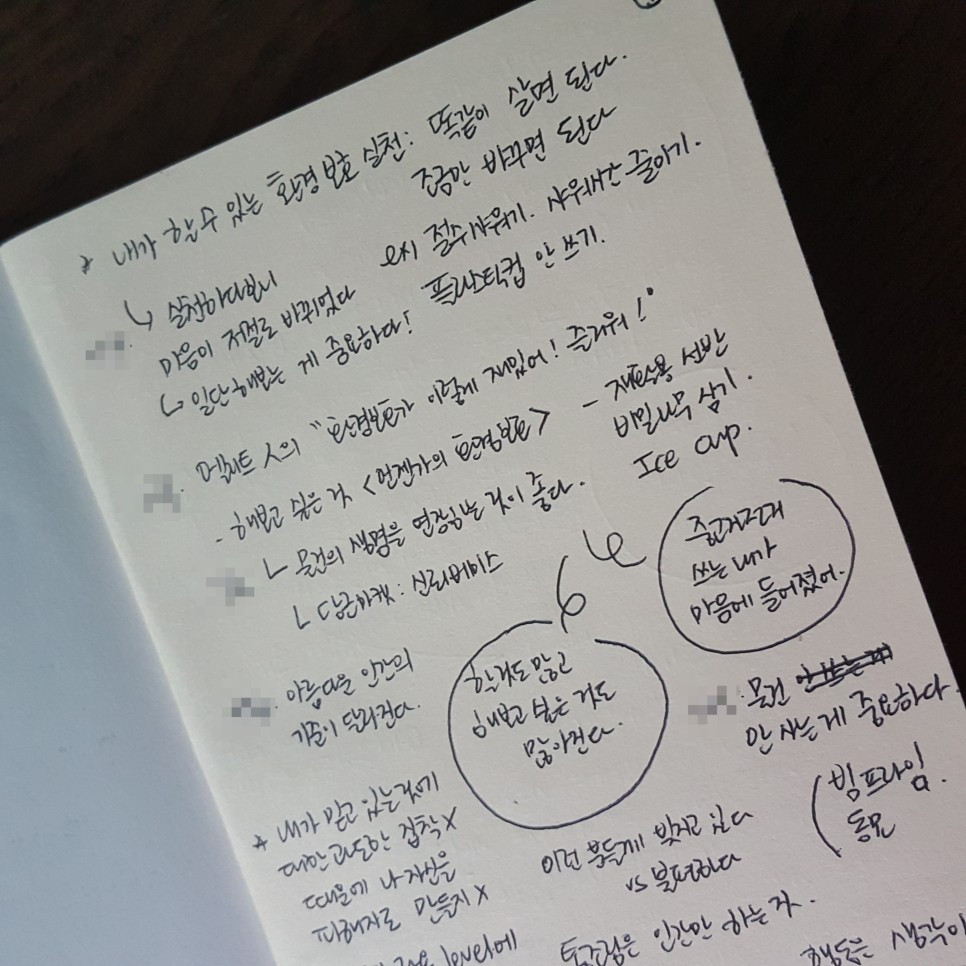 * 내가 할 수 있는 환경보호 실천: 똑같이 살면 된다.
조금만 바꾸면 된다
↳ 실천하다보니
마음이 저절로 바뀌었다
예시 절수샤워기. 샤워시간 줄이기.
플라스틱컵 안 쓰기.
↳ 일단 해보는 게 중요하다!
"환경보호가 이렇게 재밌어! 즐거워!"
- 해보고 싶은 것 <언젠가의 환경보호> - 재활용 선반
비밀나무 심기.
Ice cup.
ㄴ 물건의 생명을 연장하는 것이 좋다.
ㄴ 당근마켓: 신뢰베이스
중고거래
쓰는 내가
마음에 들어졌어.
아름다운 인간의
기준이 달라진다.
할 것도 많고
해보고 싶은 것도
많아진다.
물건
안 사는 게 중요하다
빔프라임.
동묘
* 내가 믿고 있는 것에
대한 과도한 집착 X
때문에 나 자신을
피해자로 만들지 X
이런 분들께 빚지고 있다
vs 불편하다
level에
인간만 하는 것.
행동은 생각이